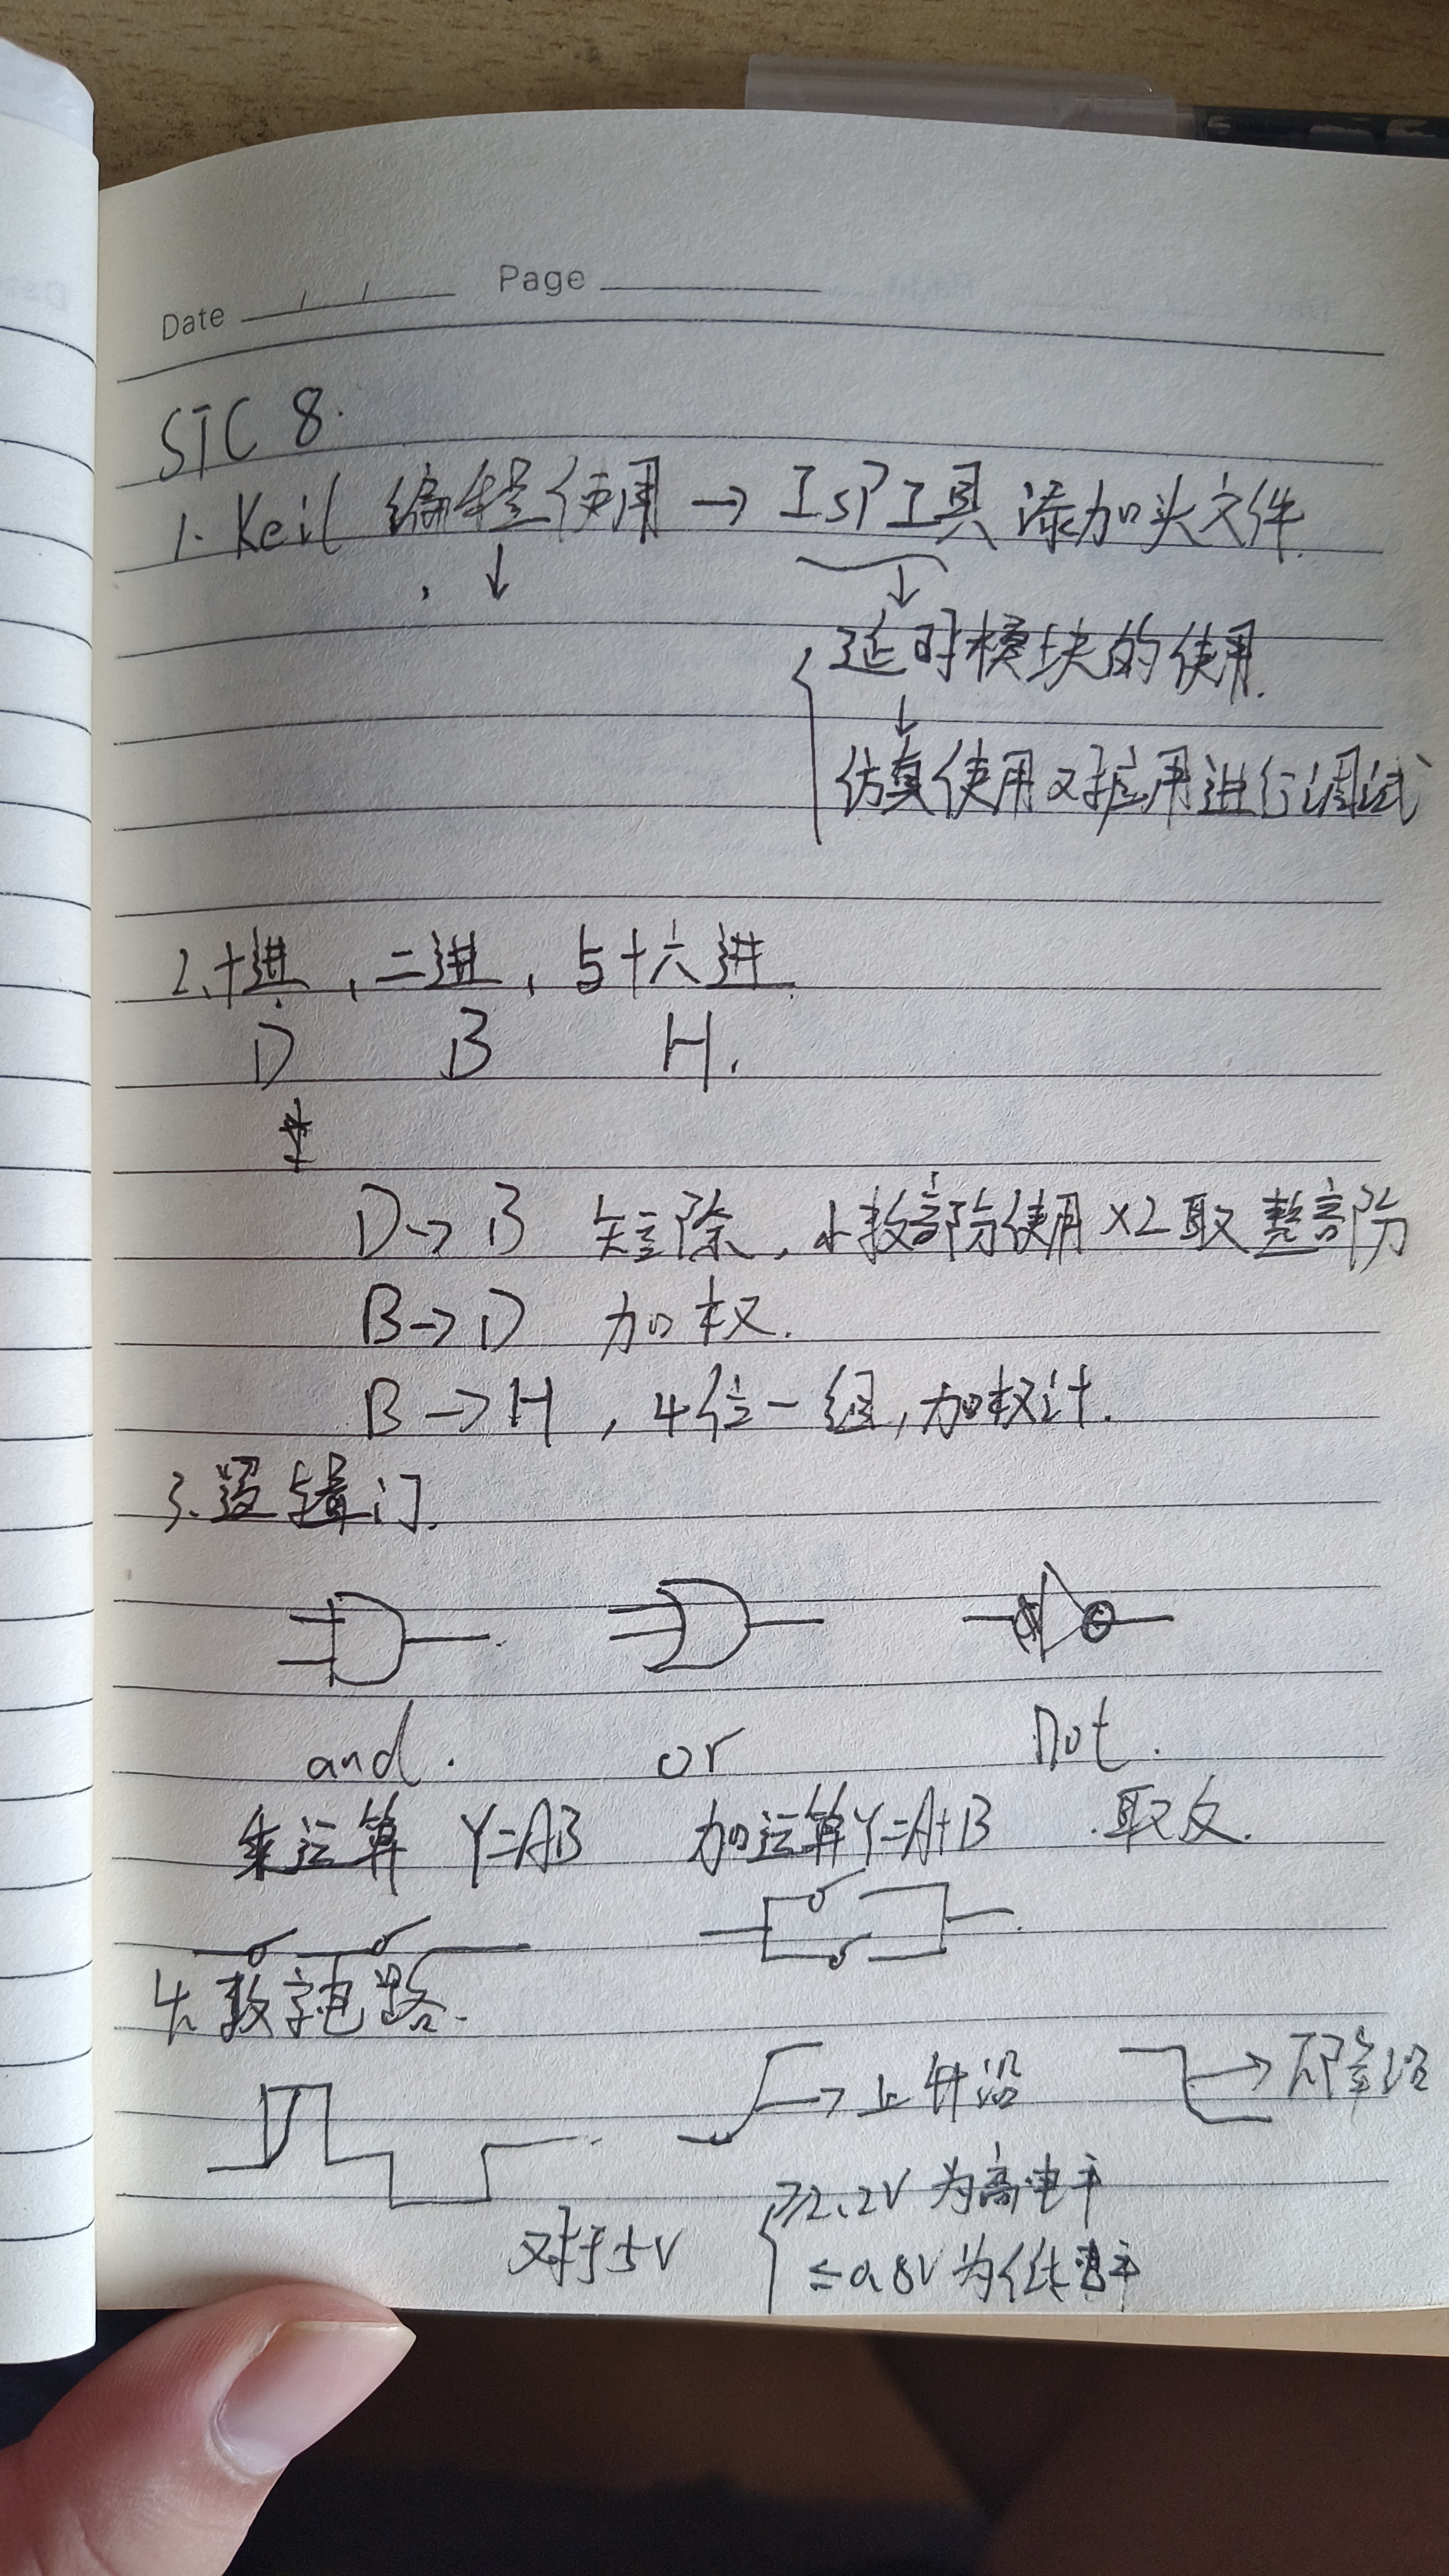 Date / / Page
STC 8.
1. Keil 编程使用 → ISP工具 添加头文件.
↓ ↓
延时模块的使用.
↓
仿真使用对应用进行调试
2、十进, 二进, 与十六进.
D B H.
D→B 短除, 小数部份使用×2取整部份
B→D 加权.
B→H, 4位一组, 加权计.
3、逻辑门.
and. or not.
乘运算 Y=AB 加运算Y=A+B 取反.
4、数字电路.
→上升沿 →下降沿
对于5V
≥2.2V 为高电平
≤0.8V 为低电平